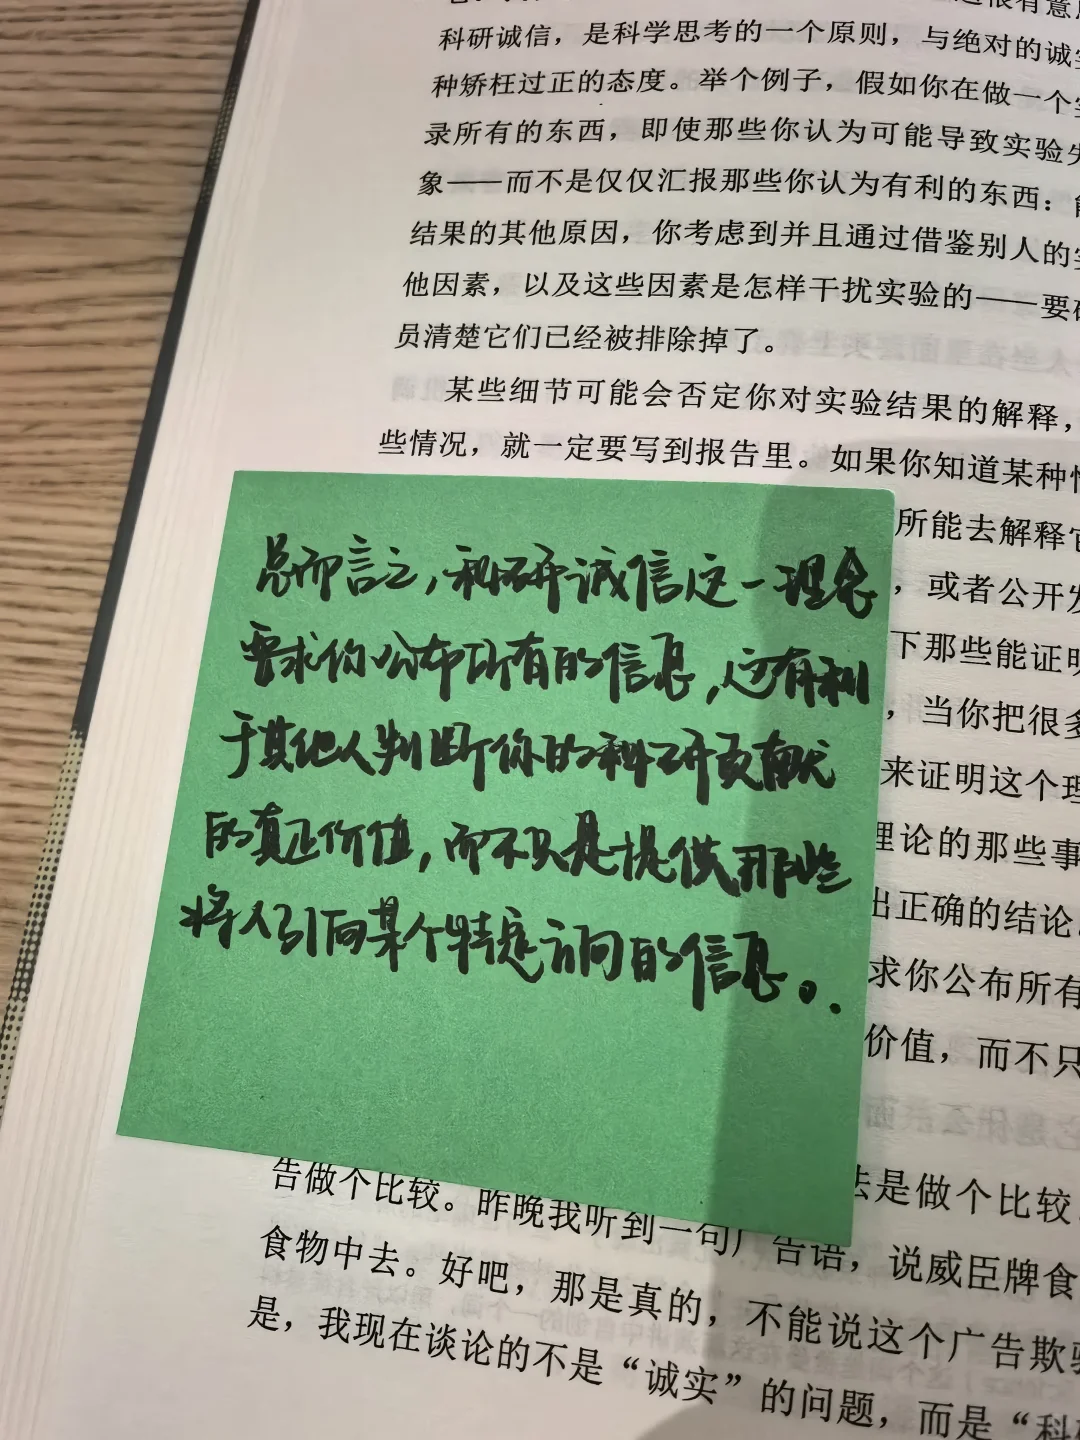 科研诚信，是科学思考的一个原则，与绝对的诚实
种矫枉过正的态度。举个例子，假如你在做一个
录所有的东西，即使那些你认为可能导致实验失
象——而不是仅仅汇报那些你认为有利的东西：
结果的其他原因，你考虑到并且通过借鉴别人的
他因素，以及这些因素是怎样干扰实验的——要
员清楚它们已经被排除掉了。
某些细节可能会否定你对实验结果的解释，
些情况，就一定要写到报告里。如果你知道某种
所能去解释它
，或者公开发
下那些能证明
，当你把很多
来证明这个理
理论的那些事
出正确的结论
求你公布所有
价值，而不只
总而言之，科研诚信这一理念
要求你公布所有的信息，这有利
于其他人判断你的科研贡献
的真正价值，而不只是提供那些
将人引向某个特定方向的信息。.
法是做个比较
告做个比较。昨晚我听到一句广告语，说威臣牌食
食物中去。好吧，那是真的，不能说这个广告欺
是，我现在谈论的不是“诚实”的问题，而是“科